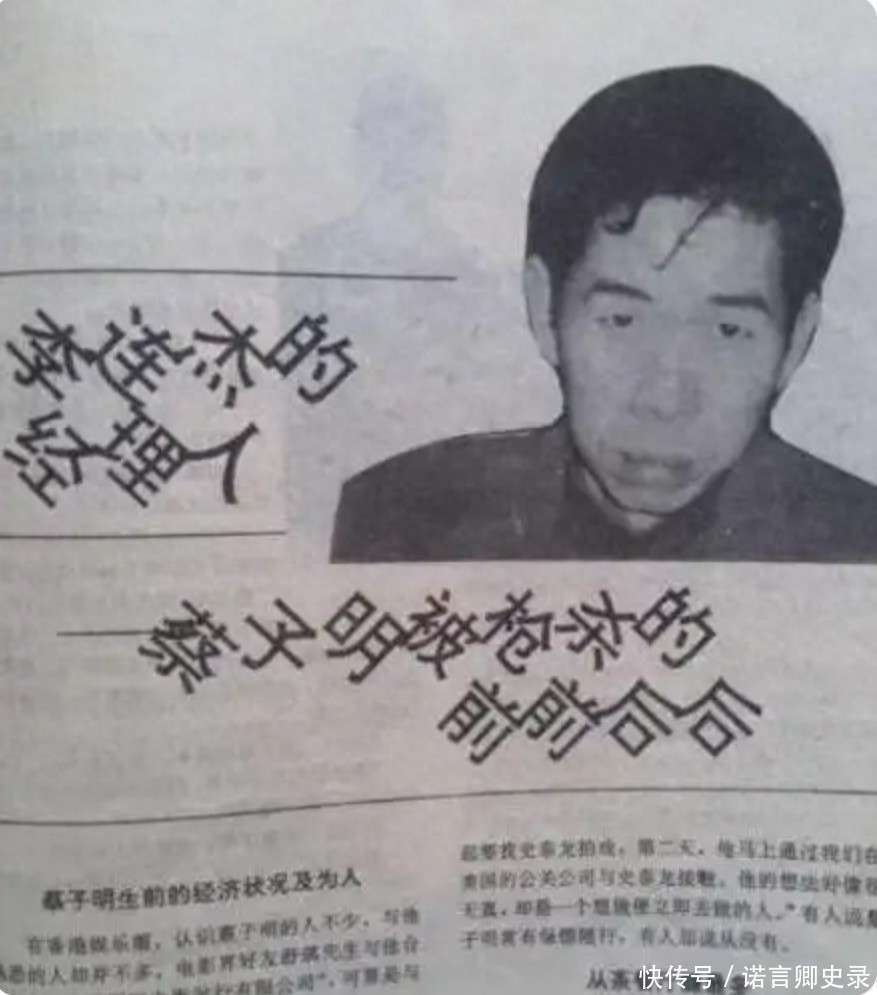 李连杰的
经理人
——蔡子明被枪杀的
前前后后
蔡子明生前的经济状况及为人
在香港娱乐圈，认识蔡子明的人不少，与他
熟悉的人却并不多，电影界好友
先生与他合
有限公司”，可算是与
起要找史泰龙拍戏，第二天，他马上通过我们在
美国的公关公司与史泰龙接触，他的想法好像很
天真，却是一个想做便立即去做的人。”有人说蔡
子明常有保镖随行，有人却说从没有。
从茶
快传号／诺言卿史录